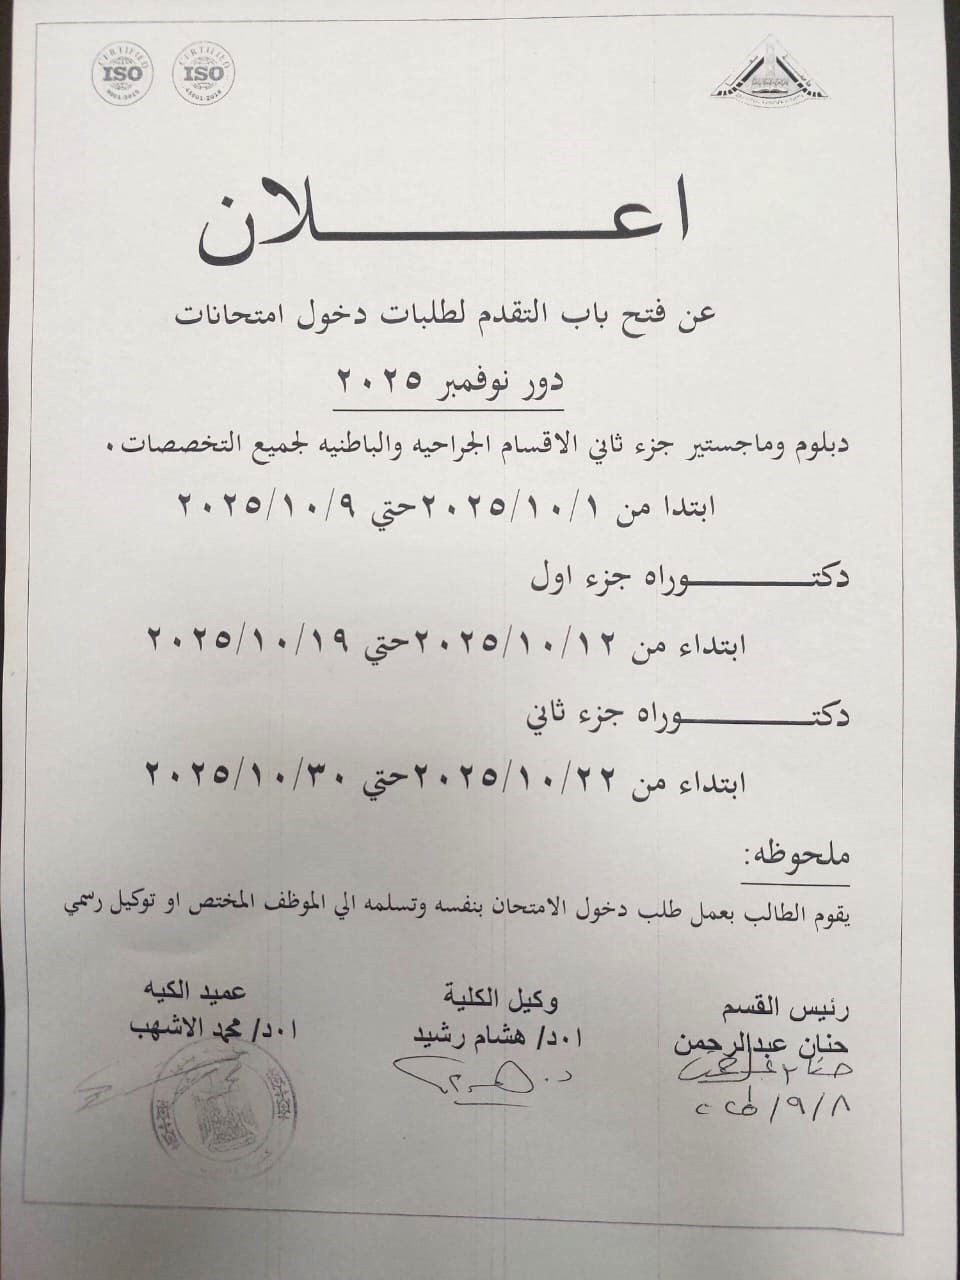 CERTIFIED CERTIFIED
ISO ISO
9001:2015 45001:2018
اعلان
عن فتح باب التقدم لطلبات دخول امتحانات
دور نوفمبر ٢٠٢٥
دبلوم وماجستير جزء ثاني الاقسام الجراحيه والباطنيه لجميع التخصصات.
ابتدا من ٢٠٢٥/١٠/١حتي ٢٠٢٥/١٠/٩
دكتوراه جزء اول
ابتداء من ٢٠٢٥/١٠/١٢حتي ٢٠٢٥/١٠/١٩
دكتوراه جزء ثاني
ابتداء من ٢٠٢٥/١٠/٢٢حتي ٢٠٢٥/١٠/٣٠
ملحوظه:
يقوم الطالب بعمل طلب دخول الامتحان بنفسه وتسلمه الي الموظف المختص او توكيل رسمي
رئيس القسم وكيل الكلية عميد الكيه
حنان عبدالرحمن ا.د/ هشام رشيد ا.د/ محمد الاشهب